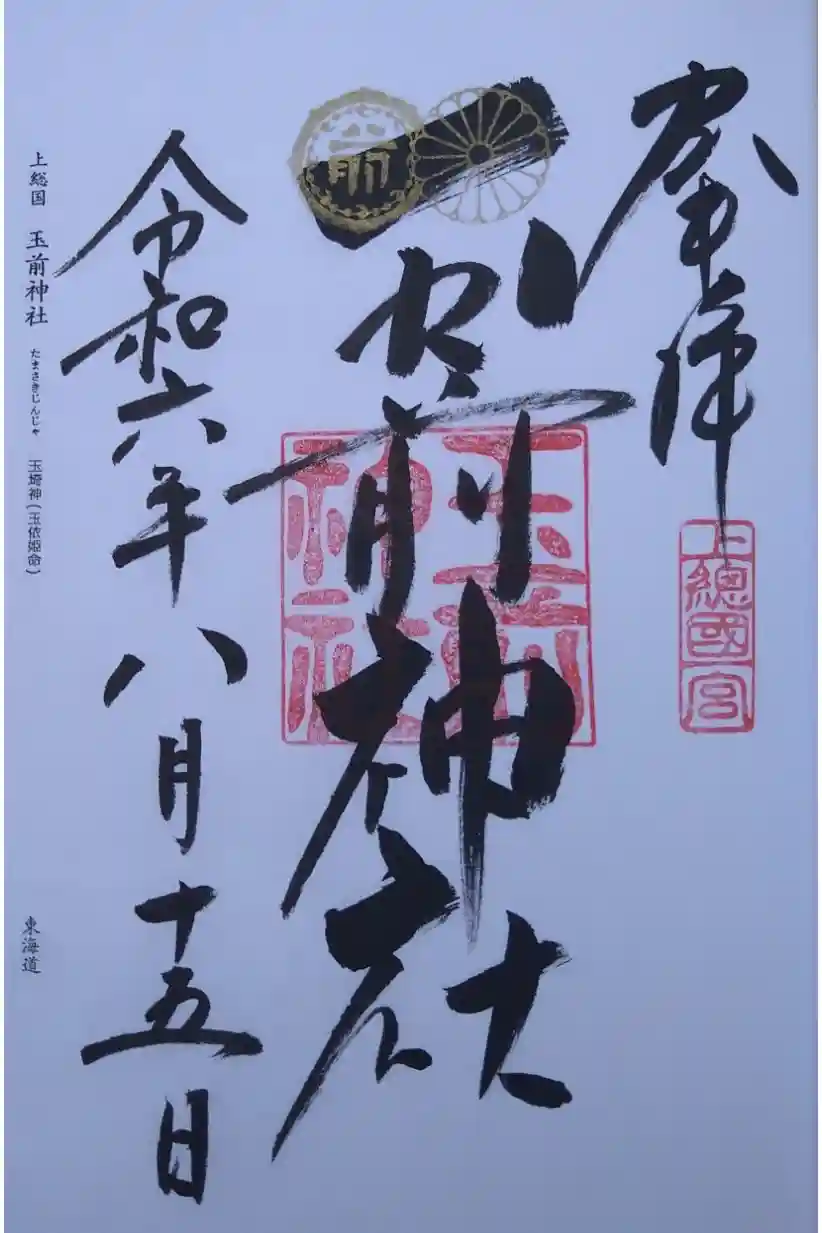 奉拝
上總國一宮
玉前神社
玉前神社
令和六年八月十五日
上総国 玉前神社 たまさきじんじゃ 玉埼神(玉依姫命) 東海道